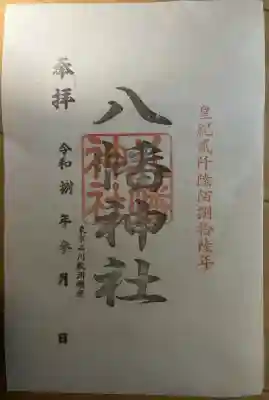 皇紀貳阡陸佰捌拾陸年
八幡神社
奉拝
令和捌年参月 日